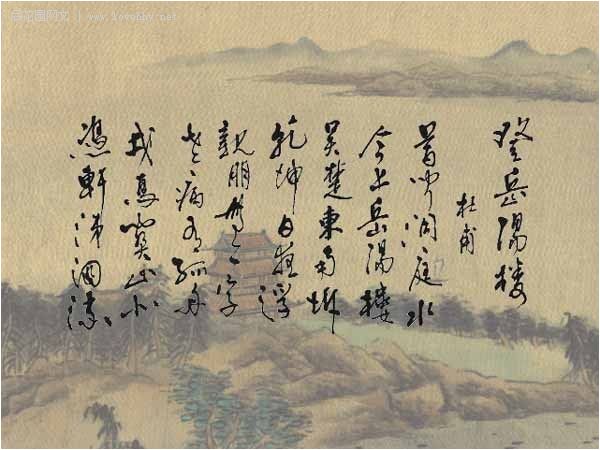 后花園网文 | www.lovehhy.net
登岳陽楼
杜甫
昔闻洞庭水
今上岳陽樓
吴楚東南坼
乾坤日夜浮
親朋無一字
老病有孤舟
戎馬関山北
憑軒涕泗流